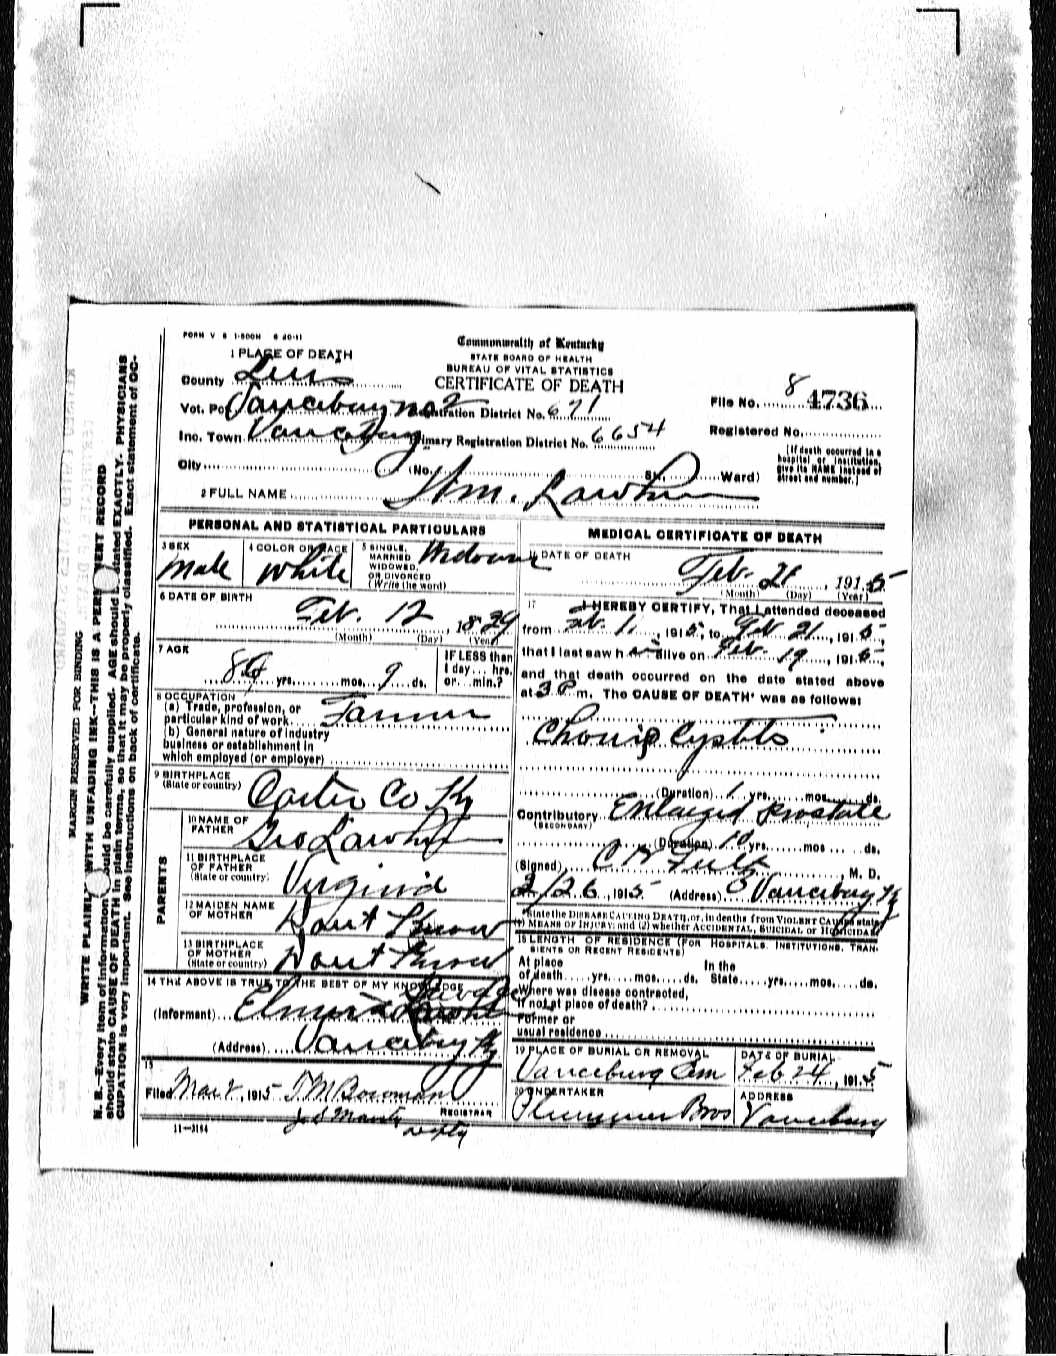 FORM V S 1-500M 6 20-11
Commonwealth of Kentucky
STATE BOARD OF HEALTH
BUREAU OF VITAL STATISTICS
CERTIFICATE OF DEATH
1 PLACE OF DEATH
County Lewis
Vot. Vanceburg No 2 Registration District No. 671
Inc. Town Vanceburg Primary Registration District No. 6654
City (No. St. Ward)
File No. 8 4736
Registered No.
[If death occurred in a
hospital or institution,
give its NAME instead of
street and number.]
2 FULL NAME Wm. Lawhun
PERSONAL AND STATISTICAL PARTICULARS
3 SEX
Male
4 COLOR OR RACE
White
5 SINGLE,
MARRIED
WIDOWED,
OR DIVORCED
(Write the word)
Widower
6 DATE OF BIRTH
Feb. 12, 1829
(Month) (Day) (Year)
7 AGE
yrs. mos. 9 ds.
IF LESS than
1 day... hrs.
or... min.?
8 OCCUPATION
(a) Trade, profession, or
particular kind of work Farmer
(b) General nature of industry
business or establishment in
which employed (or employer)
9 BIRTHPLACE
(State or country)
Carter Co Ky
PARENTS
10 NAME OF
FATHER
Geo Lawhun
11 BIRTHPLACE
OF FATHER
(State or country)
Virginia
12 MAIDEN NAME
OF MOTHER
Dont Know
13 BIRTHPLACE
OF MOTHER
(State or country)
Dont Know
14 THE ABOVE IS TRUE TO THE BEST OF MY KNOWLEDGE
(Informant) Elmira
(Address) Vanceburg Ky
15
Filed Mar 2, 1915 T M Bowman
REGISTRAR
depty
11-3184
MEDICAL CERTIFICATE OF DEATH
16 DATE OF DEATH
Feb. 21, 1915
(Month) (Day) (Year)
17 I HEREBY CERTIFY, That I attended deceased
from Feb. 1, 1915, to Feb 21, 1915,
that I last saw him alive on Feb. 19, 1915,
and that death occurred on the date stated above
at 3 P m. The CAUSE OF DEATH* was as follows:
Chronic Cystitis
(Duration) 1 yrs. mos. ds.
Contributory Enlarged Prostate
(SECONDARY)
(Duration) 10 yrs. mos. ds.
(Signed) , M. D.
2/26, 1915 (Address) Vanceburg Ky
*State the DISEASE CAUSING DEATH, or, in deaths from VIOLENT CAUSES state
(1) MEANS OF INJURY; and (2) whether ACCIDENTAL, SUICIDAL or HOMICIDAL
18 LENGTH OF RESIDENCE (FOR HOSPITALS, INSTITUTIONS, TRAN-
SIENTS OR RECENT RESIDENTS)
At place In the
of death yrs. mos. ds. State yrs. mos. ds.
Where was disease contracted,
if not at place of death?
Former or
usual residence
19 PLACE OF BURIAL OR REMOVAL
Vanceburg Cem
DATE OF BURIAL
Feb 24, 1915
20 UNDERTAKER
Plummer Bros
ADDRESS
Vanceburg
MARGIN RESERVED FOR BINDING
WRITE PLAINLY WITH UNFADING INK--THIS IS A PERMANENT RECORD
N. B.--Every item of information should be carefully supplied. AGE should be stated EXACTLY. PHYSICIANS
should state CAUSE OF DEATH in plain terms, so that it may be properly classified. Exact statement of OC-
CUPATION is very important. See instructions on back of certificate.